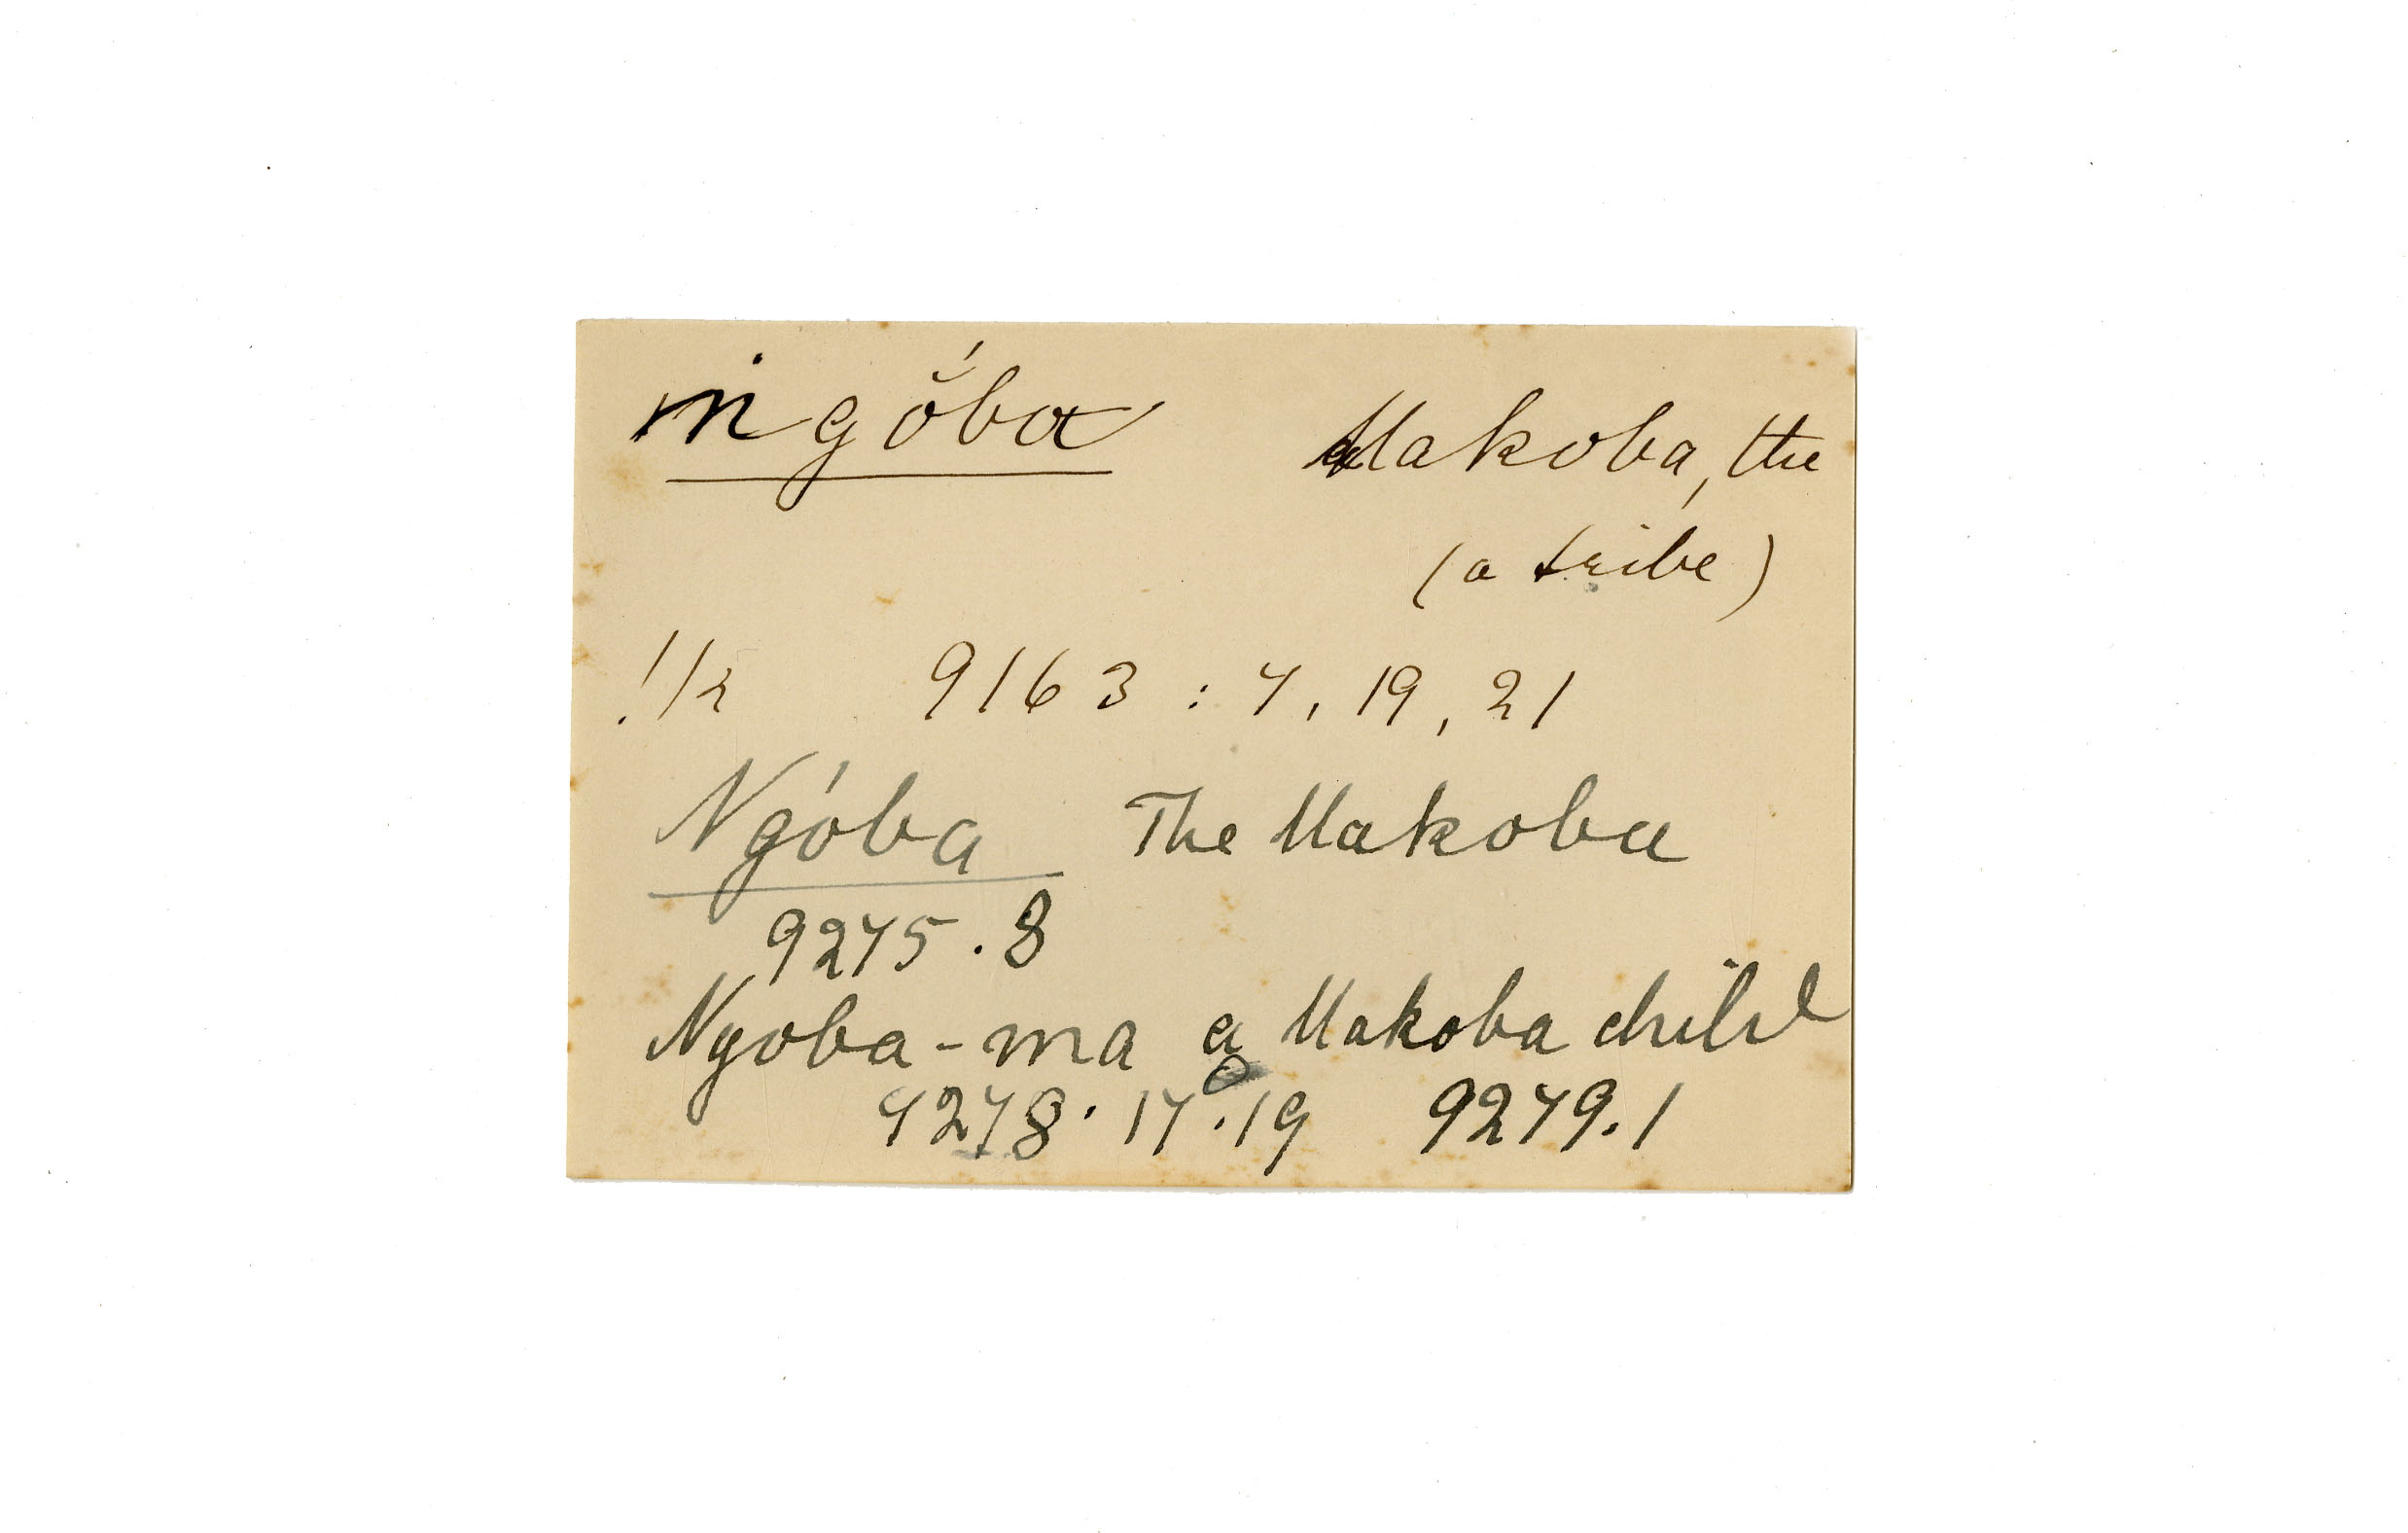 ṅgṓba Makoba, the
(a tribe)
!/2 9163 : 7, 19, 21
Ngóba The Makoba
9275 . 8
Ngoba-ma a Makoba child
9278 . 17 . 19 9279 . 1